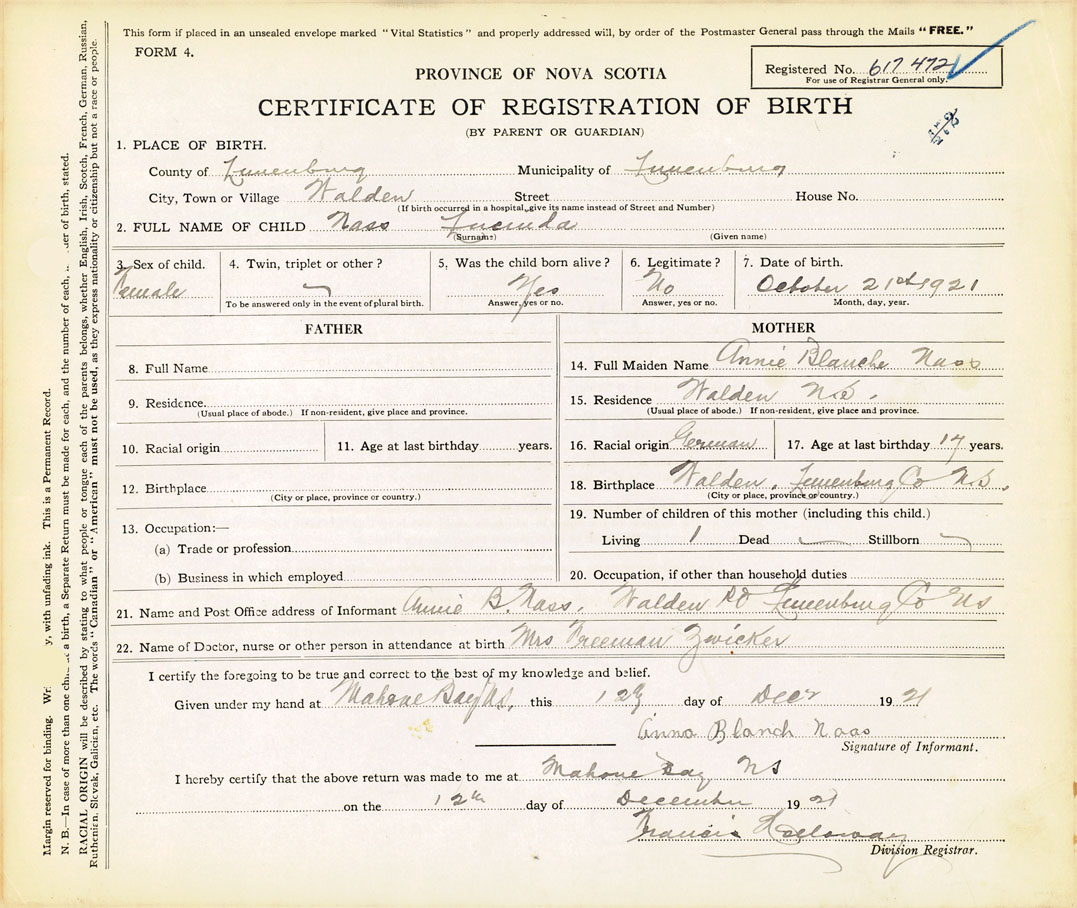 This form if placed in an unsealed envelope marked "Vital Statistics" and properly addressed will, by order of the Postmaster General pass through the Mails "FREE."
FORM 4.
Registered No. 617472
For use of Registrar General only.
PROVINCE OF NOVA SCOTIA
CERTIFICATE OF REGISTRATION OF BIRTH
(BY PARENT OR GUARDIAN)
1. PLACE OF BIRTH.
County of Lunenburg Municipality of Lunenburg
City, Town or Village Walden Street House No.
(If birth occurred in a hospital, give its name instead of Street and Number)
2. FULL NAME OF CHILD Nass Lucinda
(Surname) (Given name)
3. Sex of child. 4. Twin, triplet or other? 5. Was the child born alive? 6. Legitimate? 7. Date of birth.
Female Yes No October 21st 1921
To be answered only in the event of plural birth. Answer, yes or no. Answer, yes or no. Month, day, year.
FATHER
8. Full Name
9. Residence
(Usual place of abode.) If non-resident, give place and province.
10. Racial origin 11. Age at last birthday years.
12. Birthplace
(City or place, province or country.)
13. Occupation:—
(a) Trade or profession
(b) Business in which employed
MOTHER
14. Full Maiden Name Annie Blanche Nass
15. Residence Walden N.S.
(Usual place of abode.) If non-resident, give place and province.
16. Racial origin German 17. Age at last birthday 17 years.
18. Birthplace Walden, Lunenburg Co N.S.
(City or place, province or country.)
19. Number of children of this mother (including this child.)
Living 1 Dead Stillborn
20. Occupation, if other than household duties
21. Name and Post Office address of Informant Annie B. Nass, Walden Lunenburg Co NS
22. Name of Doctor, nurse or other person in attendance at birth Mrs Freeman Zwicker
I certify the foregoing to be true and correct to the best of my knowledge and belief.
Given under my hand at Mahone Bay NS, this 12 day of Decr 1921
Anna Blanch Naas
Signature of Informant.
I hereby certify that the above return was made to me at Mahone Bay NS
on the 12th day of December 1921
Francis Holloway
Division Registrar.
Margin reserved for binding. y, with unfading ink. This is a Permanent Record.
N. B.—In case of more than one a birth, a Separate Return must be made for each, and the number of each, of birth, stated.
RACIAL ORIGIN will be described by stating to what people or tongue each of the parents belongs, whether English, Irish, Scotch, French, German, Russian,
Ruthenian, Slovak, Galician, etc. The words "Canadian" or "American" must not be used, as they express nationality or citizenship but not a race or people.